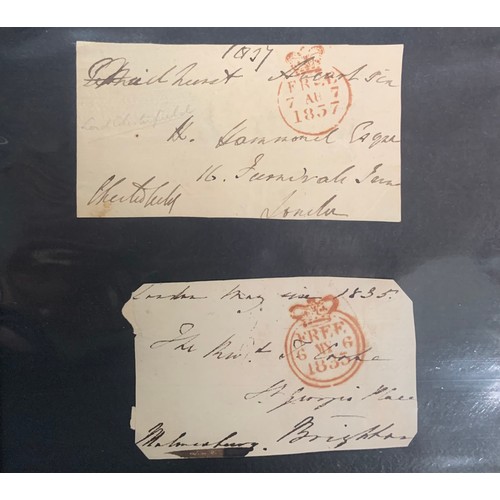 1837
August Six
FREE
7 AU 7
1837
H. Hammond Esqre
16. Furnivals Inn
London
Chesterfield
Lord Chesterfield
London May six 1835.
FREE
6 MY 6
1835
The Revd
St Georges Place
Brighton
Malmesbury